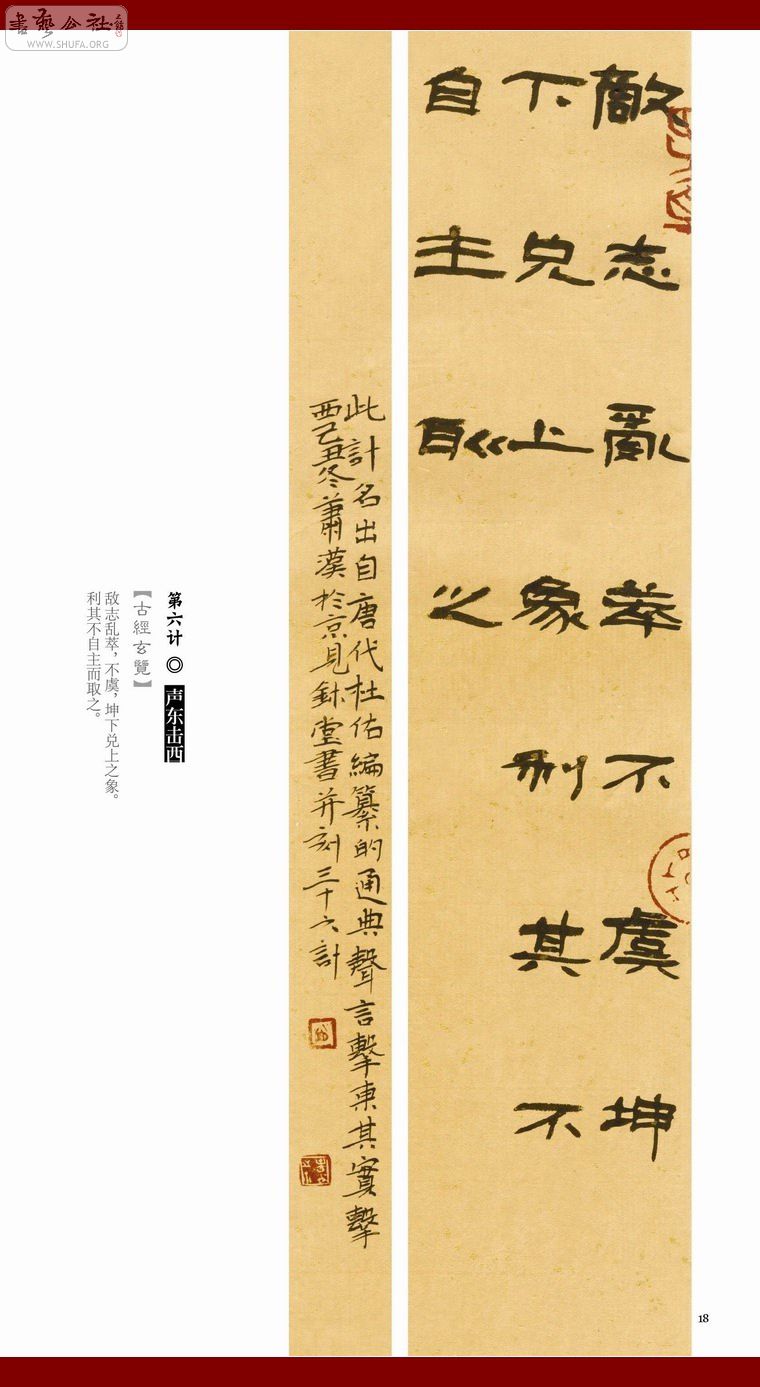 書藝公社
WWW.SHUFA.ORG
敵志亂萃不虞坤
下兑上象利其不
自主取之
此計名出自唐代杜佑編纂的通典聲言擊東其實擊
西己丑冬蕭漢於京見鉢堂書并刻三十六計
第六计 ◎ 声东击西
【古經玄覽】
敌志乱萃，不虞，坤下兑上之象。
利其不自主而取之。
18